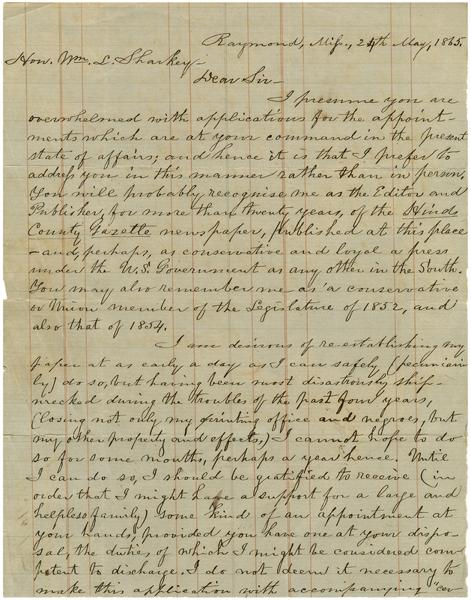 Raymond, Miss., 24th May, 1865.
Hon. Wm. L. Sharkey—
Dear Sir—
I presume you are
overwhelmed with applications for the appoint-
ments which are at your command in the present
state of affairs; and hence it is that I prefer to
address you in this manner rather than in person.
You will probably recognise me as the Editor and
Publisher, for more than twenty years, of the Hinds
County Gazette newspaper, published at this place
—and, perhaps, as conservative and loyal a press
under the U.S. Government as any other in the South.
You may also remember me as a conservative
or Union member of the Legislature of 1852, and
also that of 1854.
I am desirous of re-establishing my
paper at as early a day as I can safely (pecuniari-
ly) do so, but having been most disastrously ship-
wrecked during the troubles of the past four years,
(losing not only my printing office and negroes, but
my other property and effects,) I cannot hope to do
so for some months, perhaps a year hence. Until
I can do so, I should be gratified to receive (in
order that I might have a support for a large and
helpless family) some kind of an appointment at
your hands, provided you have one at your dispo-
sal, the duties of which I might be considered com-
petent to discharge. I do not deem it necessary to
make this application with accompanying "cer